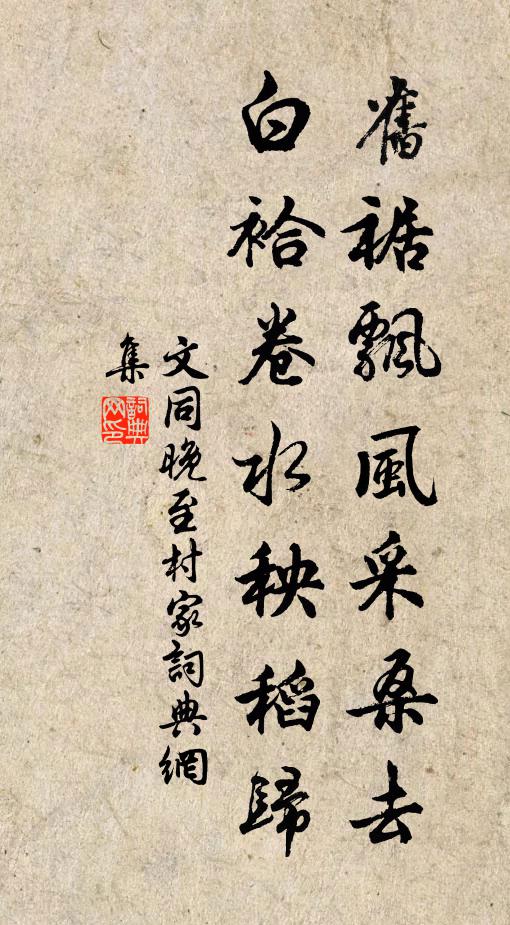 舊裾飄風采桑去
白袷卷水秧稻歸
文同晚至村家詞典網
集
詞典網印